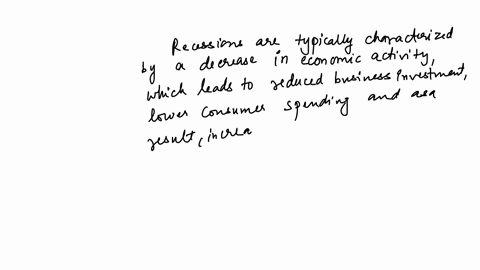 Recessions are typically characterized
by a decrease in economic activity,
which leads to reduced business investment,
lower consumer spending and as a
result, increa